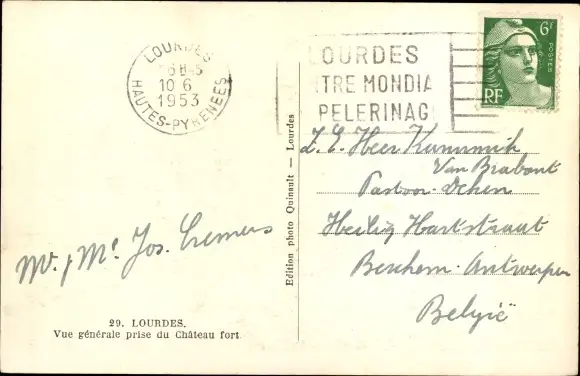 LOURDES
10 6
1953
HAUTES-PYRENEES
LOURDES
NTRE MONDIA
PELERINAG
6F
POSTES
RF
Z. E. Heer Kanunnik
Van Brabant
Pastoor-Deken
Heilig Hartstraat
Berchem-Antwerpen
België
Jos. Cremers
Edition photo Quinault — Lourdes
29. LOURDES.
Vue générale prise du Château fort